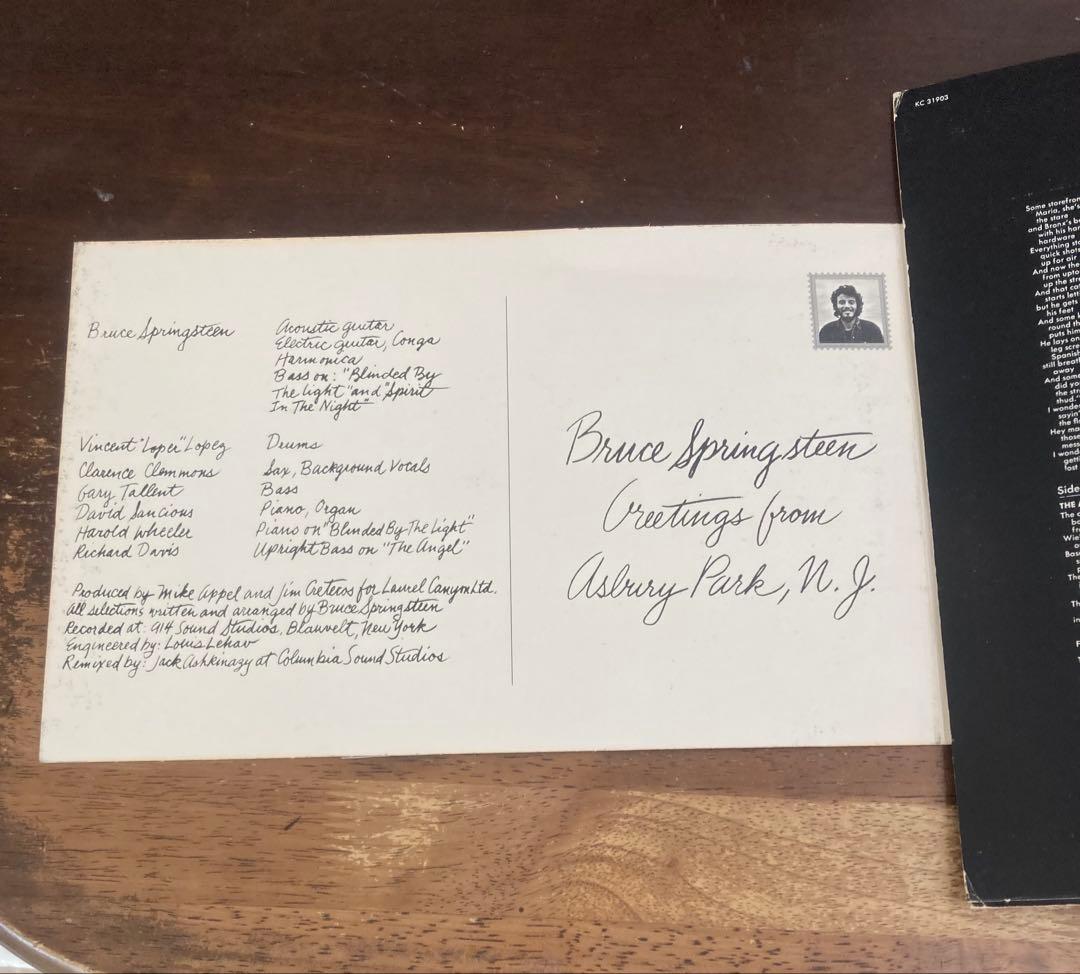 Bruce Springsteen Acoustic guitar
Electric guitar, Conga
Harmonica
Bass on: "Blinded By
The Light" and "Spirit
In The Night"
Vincent "Loper" Lopez Drums
Clarence Clemmons Sax, Background Vocals
Gary Tallent Bass
David Sancious Piano, Organ
Harold Wheeler Piano on "Blinded By The Light"
Richard Davis Upright Bass on "The Angel"
Produced by Mike Appel and Jim Cretecos for Laurel Canyon Ltd.
All selections written and arranged by Bruce Springsteen
Recorded at: 914 Sound Studios, Blauvelt, New York
Engineered by: Louis Lehav
Remixed by: Jack Ashkinazy at Columbia Sound Studios
Bruce Springsteen
Greetings from
Asbury Park, N. J.
KC 31903
Some storefron
Maria, she's
the stare
and Bronx's b
with his har
hardware
Everything sto
quick shots
up for air
And now the
from upto
up the str
And that ca
starts lett
but he gets
his feet
And some
round th
puts him
He lays on
leg scre
Spanish
still breat
away
And some
did you
the str
thud."
I wonder
sayin'
the fl
Hey ma
those
mess
I wond
getti
fast
Side
THE